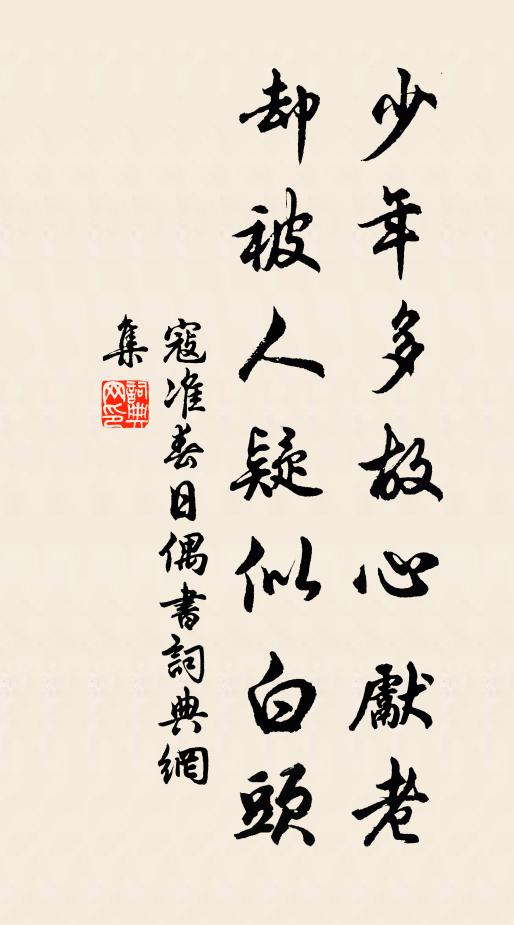 少年多故心獻老
却被人疑似白頭
寇准春日偶書詞典網
集
詞典网印